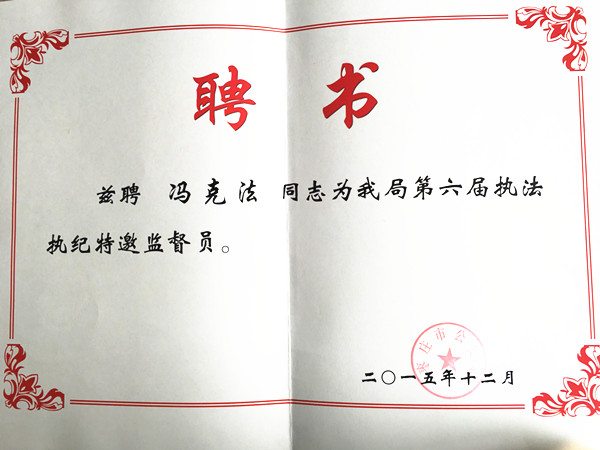 聘 书
兹聘 冯克法 同志为我局第六届执法
执纪特邀监督员。
庄市公
二〇一五年十二月